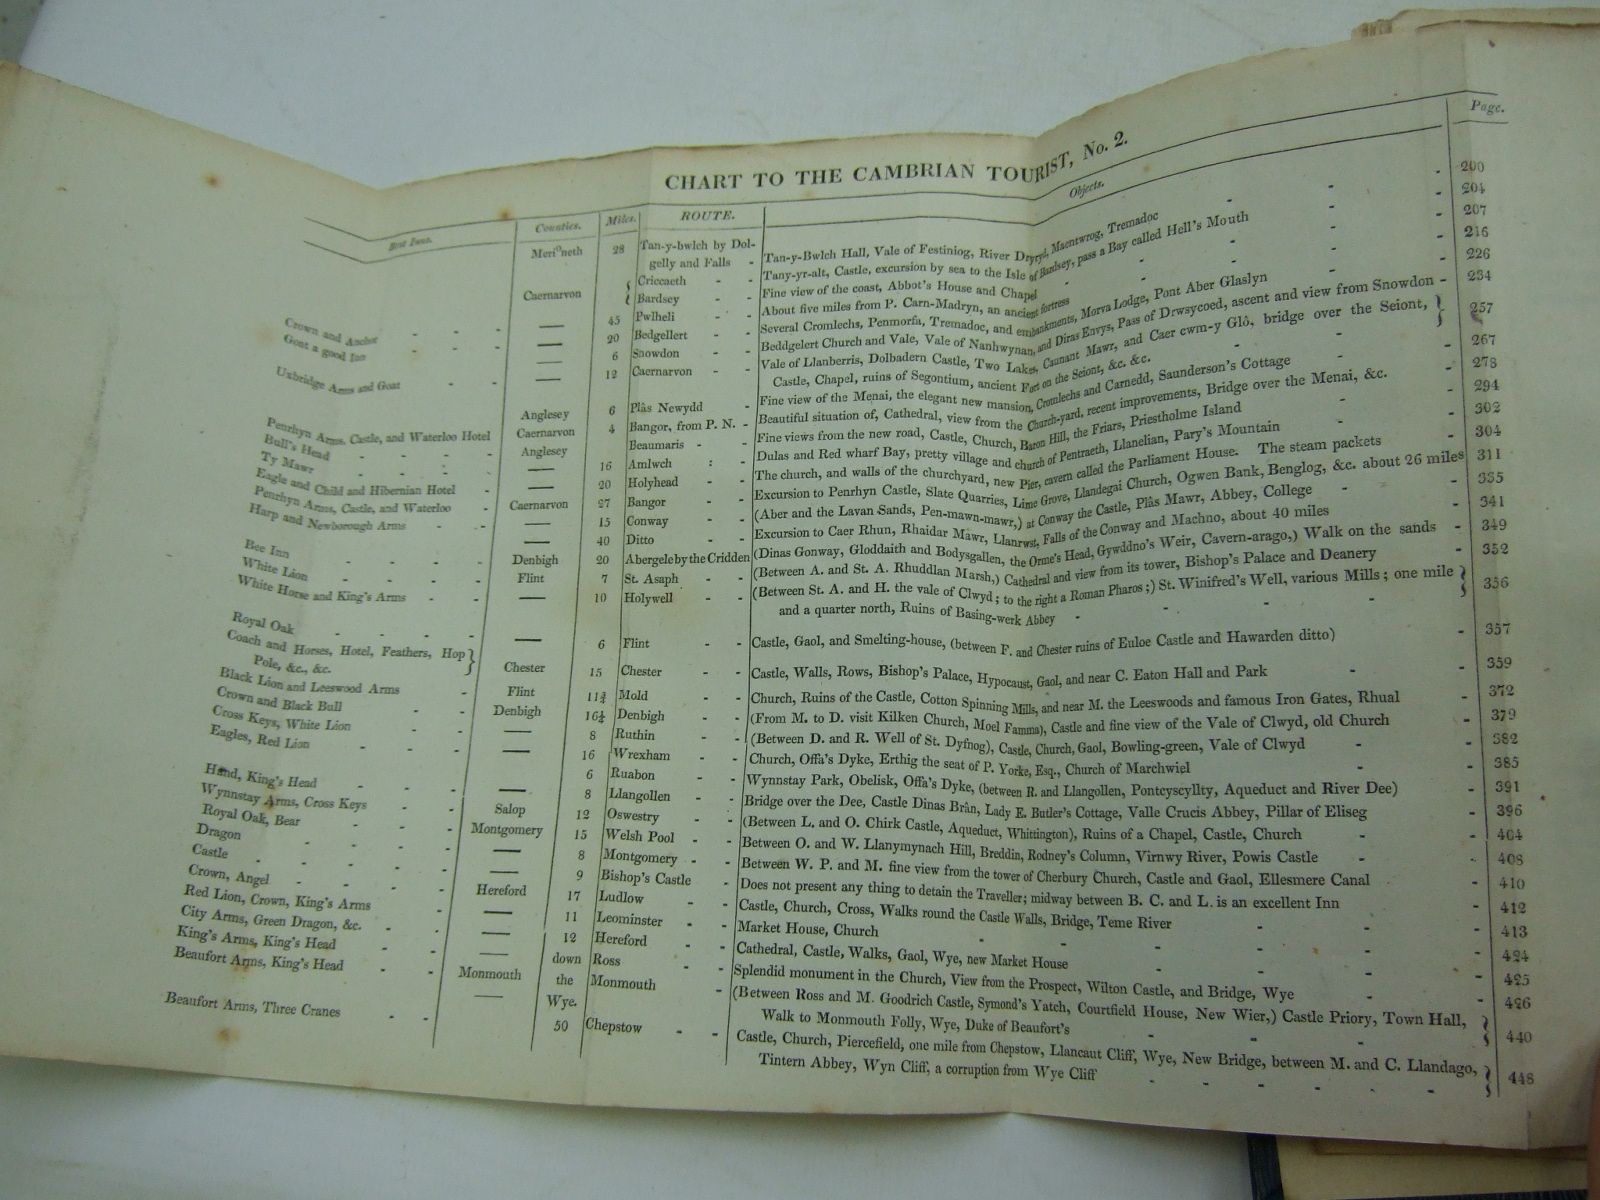 CHART TO THE CAMBRIAN TOURIST, No. 2.
Best Inns. Counties. Miles. ROUTE. Objects. Page.
Meri^o neth 28 Tan-y-bwlch by Dol-
gelly and Falls - Tan-y-Bwlch Hall, Vale of Festiniog, River Dryryd, Maentwrog, Tremadoc - - - 200
Caernarvon { Criccaeth - - Tany-yr-alt, Castle, excursion by sea to the Isle of Bardsey, pass a Bay called Hell's Mouth - - 204
{ Bardsey - - Fine view of the coast, Abbot's House and Chapel - - - - 207
Crown and Anchor - - - — 45 Pwlheli - - About five miles from P. Carn-Madryn, an ancient fortress - - - 216
Goat a good Inn - - - — 20 Bedgellert - - Several Cromlechs, Penmorfa, Tremadoc, and embankments, Morva Lodge, Pont Aber Glaslyn - - 226
— 6 Snowdon - - Beddgelert Church and Vale, Vale of Nanhwynan, and Diras Emrys, Pass of Drwsycoed, ascent and view from Snowdon - 234
Uxbridge Arms and Goat - - — 12 Caernarvon - - Vale of Llanberris, Dolbadern Castle, Two Lakes, Caunant Mawr, and Caer cwm-y Glô, bridge over the Seiont, }
Castle, Chapel, ruins of Segontium, ancient Fort on the Seiont, &c. &c. - - - } 257
Anglesey 6 Plâs Newydd - Fine view of the Menai, the elegant new mansion, Cromlechs and Carnedd, Saunderson's Cottage - - 267
Penrhyn Arms, Castle, and Waterloo Hotel Caernarvon 4 Bangor, from P. N. - Beautiful situation of, Cathedral, view from the Church-yard, recent improvements, Bridge over the Menai, &c. - 278
Bull's Head - - - - Anglesey Beaumaris - - Fine views from the new road, Castle, Church, Baron Hill, the Friars, Priestholme Island - - 294
Ty Mawr - - - - — 16 Amlwch : - Dulas and Red wharf Bay, pretty village and church of Pentraeth, Llanelian, Pary's Mountain - - 302
Eagle and Child and Hibernian Hotel - — 20 Holyhead - - The church, and walls of the churchyard, new Pier, cavern called the Parliament House. The steam packets - 304
Penrhyn Arms, Castle, and Waterloo - Caernarvon 27 Bangor - - Excursion to Penrhyn Castle, Slate Quarries, Lime Grove, Llandegai Church, Ogwen Bank, Benglog, &c. about 26 miles 311
Harp and Newborough Arms - - — 15 Conway - - (Aber and the Lavan Sands, Pen-mawn-mawr,) at Conway the Castle, Plâs Mawr, Abbey, College - - 335
— 40 Ditto - - Excursion to Caer Rhun, Rhaidar Mawr, Llanrwst, Falls of the Conway and Machno, about 40 miles - - 341
Bee Inn - - - - Denbigh 20 Abergele by the Cridden (Dinas Gonway, Gloddaith and Bodysgallen, the Orme's Head, Gywddno's Weir, Cavern-arago,) Walk on the sands - 349
White Lion - - - - Flint 7 St. Asaph - - (Between A. and St. A. Rhuddlan Marsh,) Cathedral and view from its tower, Bishop's Palace and Deanery - 352
White Horse and King's Arms - - — 10 Holywell - - (Between St. A. and H. the vale of Clwyd; to the right a Roman Pharos;) St. Winifred's Well, various Mills; one mile }
and a quarter north, Ruins of Basing-werk Abbey - - - - } 356
Royal Oak - - - - — 6 Flint - - Castle, Gaol, and Smelting-house, (between F. and Chester ruins of Euloe Castle and Hawarden ditto) - 357
Coach and Horses, Hotel, Feathers, Hop }
Pole, &c., &c. } Chester 15 Chester - - Castle, Walls, Rows, Bishop's Palace, Hypocaust, Gaol, and near C. Eaton Hall and Park - - 359
Black Lion and Leeswood Arms - Flint 11¾ Mold - - Church, Ruins of the Castle, Cotton Spinning Mills, and near M. the Leeswoods and famous Iron Gates, Rhual - 372
Crown and Black Bull - - Denbigh 16¼ Denbigh - - (From M. to D. visit Kilken Church, Moel Famma), Castle and fine view of the Vale of Clwyd, old Church - 379
Cross Keys, White Lion - - — 8 Ruthin - - (Between D. and R. Well of St. Dyfnog), Castle, Church, Gaol, Bowling-green, Vale of Clwyd - - 382
Eagles, Red Lion - - - — 16 Wrexham - - Church, Offa's Dyke, Erthig the seat of P. Yorke, Esq., Church of Marchwiel - - 385
Hand, King's Head - - - — 6 Ruabon - - Wynnstay Park, Obelisk, Offa's Dyke, (between R. and Llangollen, Pontcyscyllty, Aqueduct and River Dee) - 391
8 Llangollen - - Bridge over the Dee, Castle Dinas Brân, Lady E. Butler's Cottage, Valle Crucis Abbey, Pillar of Eliseg - 396
Wynnstay Arms, Cross Keys - - Salop 12 Oswestry - - (Between L. and O. Chirk Castle, Aqueduct, Whittington), Ruins of a Chapel, Castle, Church - - 404
Royal Oak, Bear - - - Montgomery 15 Welsh Pool - - Between O. and W. Llanymynach Hill, Breddin, Rodney's Column, Virnwy River, Powis Castle - - 408
Dragon - - - - — 8 Montgomery - - Between W. P. and M. fine view from the tower of Cherbury Church, Castle and Gaol, Ellesmere Canal - 410
Castle - - - - — 9 Bishop's Castle - Does not present any thing to detain the Traveller; midway between B. C. and L. is an excellent Inn - 412
Crown, Angel - - - Hereford 17 Ludlow - - Castle, Church, Cross, Walks round the Castle Walls, Bridge, Teme River - - 413
Red Lion, Crown, King's Arms - — 11 Leominster - - Market House, Church - - - - 424
City Arms, Green Dragon, &c. - - — 12 Hereford - - Cathedral, Castle, Walks, Gaol, Wye, new Market House - - - 425
King's Arms, King's Head - - — down Ross - - Splendid monument in the Church, View from the Prospect, Wilton Castle, and Bridge, Wye - - 426
Beaufort Arms, King's Head - - Monmouth the Monmouth - (Between Ross and M. Goodrich Castle, Symond's Yatch, Courtfield House, New Wier,) Castle Priory, Town Hall, }
Wye. Walk to Monmouth Folly, Wye, Duke of Beaufort's - - - - } 440
Beaufort Arms, Three Cranes - - — 50 Chepstow - - Castle, Church, Piercefield, one mile from Chepstow, Llancaut Cliff, Wye, New Bridge, between M. and C. Llandago, }
Tintern Abbey, Wyn Cliff, a corruption from Wye Cliff - - - - - - } 448